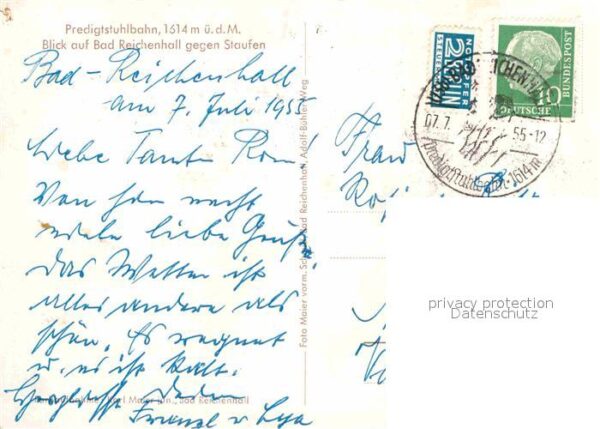 Predigtstuhlbahn, 1614 m ü.d.M.
Blick auf Bad Reichenhall gegen Staufen
Bad-Reichenhall
am 7. Juli 1955
Liebe Tante
Von hier recht
viele liebe Grüße.
Das Wetter ist
alles andere als
schön. Es regnet
u. es ist kalt.
Franzl u
Bad Reichenhall
Foto Maier vorm. Bad Reichenhall, Adolf-Bühler-Weg
NOTOPFER
2 BERLIN
STEUERMARKE
10
DEUTSCHE
BUNDESPOST
07.7. 55-12
Predigtstuhlbahn·1614 m
Frau
privacy protection
Datenschutz